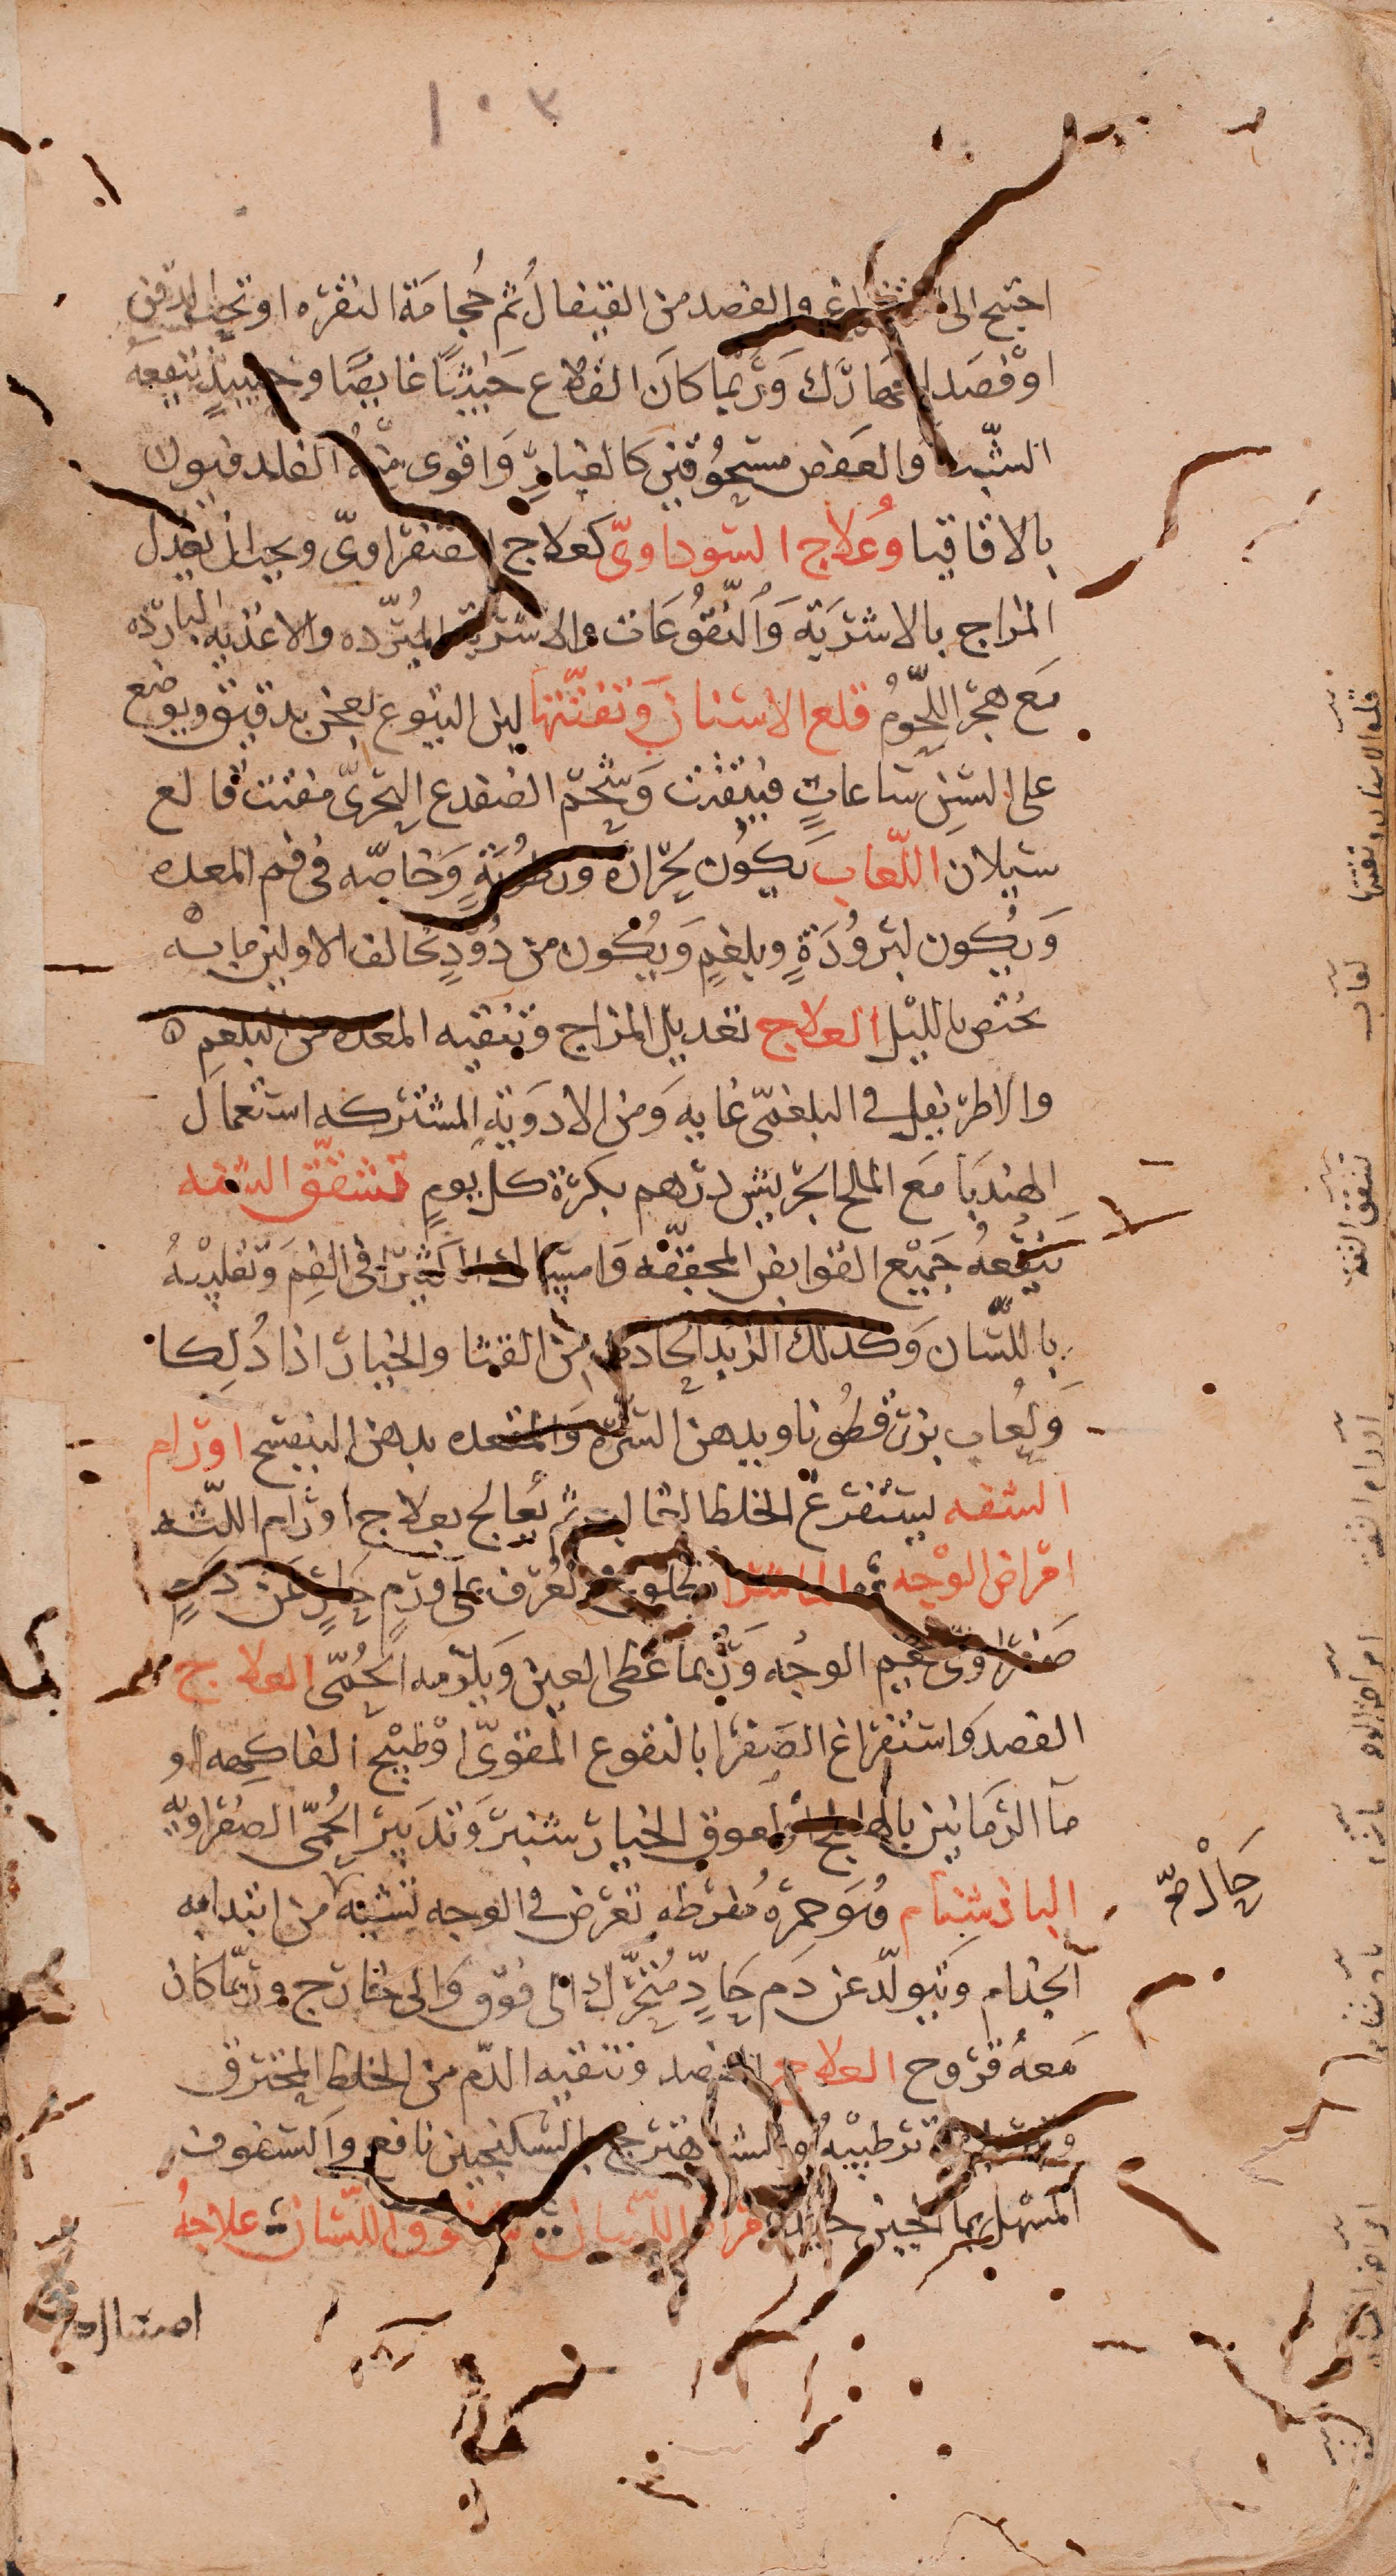 ١٠٣
احتيج الى والفصد من القيفال ثم حجامة النقره او تحت الذقن
او فصد الجهارك وربما كان القلاع خبيثا غايصا وحينيذ ينفعه
الشب والعفص مسحوقين كالغبار واقوى منه الفلدفيون
بالاقاقيا وعلاج السوداوي كعلاج الصفراوي ويجب ان تعدل
المزاج بالاشربة والنقوعات والاشربة المبرده والاغذيه البارده
مع هجر اللحوم قلع الاسنان وتفتتها لبن اليتوع يعجن بدقيق ويوضع
على السن ساعات فيتفتت وشحم الضفدع البحري مفتت قالع
سيلان اللعاب يكون لحرارة ورطوبة وخاصه في فم المعده
ويكون لبرودة وبلغم ويكون من دود يخالف الاولين ما بــه
يختص بالليل العلاج تعديل المزاج وتنقيه المعده من البلغم ه
والاطريفل في البلغمي غايه ومن الادوية المشتركه استعمال
الهندبا مع الملح الجريش درهم بكرة كل يوم تشقق الشفه
ينفعه جميع القوابض المجففه وامساك كثيرا في الفم وتقليبه
باللسان وكذلك الزبد الحادث من القثا والخيار اذا دلكا
ولعاب بزر قطونا ويدهن السرة والمقعده بدهن البنفسج اورام
الشفه يستفرغ الخلط الغالب ثم يعالج بعلاج اورام اللثه
امراض الوجه الماشرا يعرف على ورم حار عن دم
صفراوي يعم الوجه وربما غطى العين ويلزمه الحمى العلاج
الفصد واستفراغ الصفرا بالنقوع المقوى او طبيخ الفاكهه او
ما الرمانين بالهليلج او لعوق الخيار شنبر وتدبير الحمى الصفراويه
الباذشنام هو حمرة مفرطه تعرض في الوجه تشبه من ابتدا به
الجذام ويتولد عن دم حاد متحرك الى فوق والى خارج وربما كان
معه قروح العلاج الفصد وتنقيه الدم من الخلط المحترق
ترطيبه والشاهترج بالسكنجبين نافع والسفوف
المسهل بما الجبن جيد امراض اللسان شقوق اللسان علاجه
قلع الاسنان وتفتتها
لعاب
تشقق الشفة
اورام الشفه
امراض الوجه
باذشنام